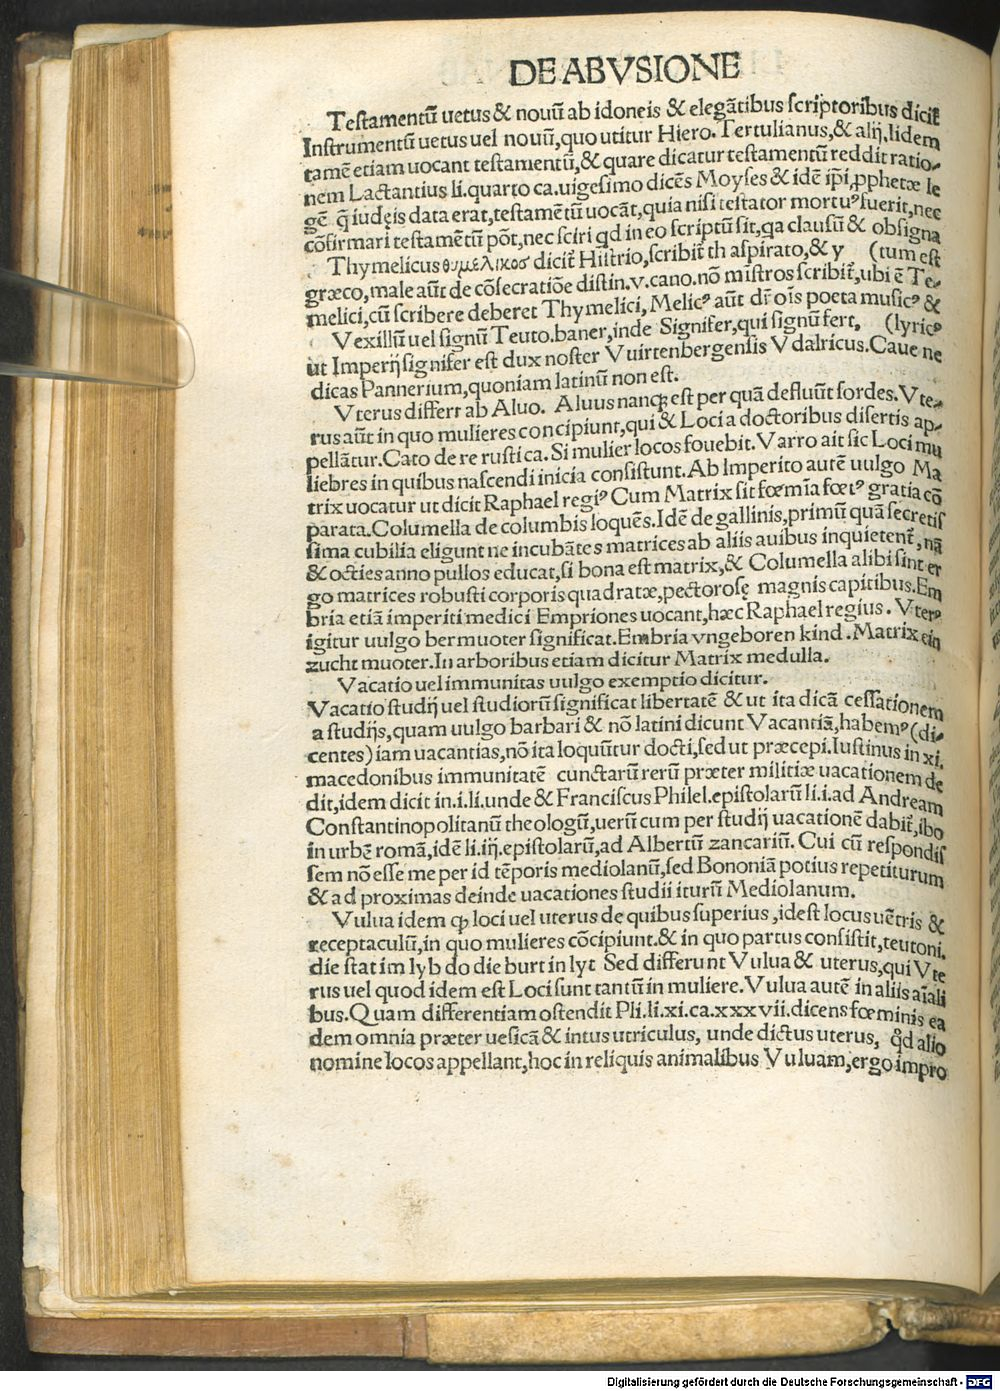 DE ABVSIONE
Testamentū uetus & nouū ab idoneis & elegātibus scriptoribus dicit̄
Instrumentū uetus uel nouū, quo utitur Hiero. Tertulianus, & alij, Iidem
tamē etiam uocant testamentū, & quare dicatur testamentū reddit ratio-
nem Lactantius li. quarto ca. uigesimo dicēs Moyses & idē ip̄i, ꝓphetæ le
gē q̄ iudęis data erat, testamētū uocāt, quia nisi testator mortuꝰ fuerit, nec
cōfirmari testamētū pōt, nec sciri qd in eo scriptū sit, qa clausū & obsigna
Thymelicus θυμελικοσ dicit̄ Histrio, scribit̄ th aspirato, & y (tum est
græco, male aūt de cōsecratiōe distin. v. cano. nō mīstros scribit̄, ubi ē Te-
melici, cū scribere deberet Thymelici, Melicꝰ aūt dr̄ oīs poeta musicꝰ &
Vexillū uel signū Teuto. baner, inde Signifer, qui signū fert, (lyricꝰ
ut Imperij signifer est dux noster Vuirtenbergensis Vdalricus. Caue ne
dicas Pannerium, quoniam latinū non est.
Vterus differt ab Aluo. Aluus nanqꝫ est per quā defluūt sordes. Vte-
rus aūt in quo mulieres concipiunt, qui & Loci a doctoribus disertis ap-
pellātur. Cato de re rustica. Si mulier locos fouebit. Varro ait sic Loci mu
liebres in quibus nascendi inicia consistunt. Ab Imperito autē uulgo Ma
trix uocatur ut dicit Raphael regiꝰ Cum Matrix sit fœmīa fœtꝰ gratia cō
parata. Columella de columbis loquēs. Idē de gallinis, primū quā secretis
sima cubilia eligunt ne incubātes matrices ab aliis auibus inquietent̄, nā
& octies anno pullos educat, si bona est matrix, & Columella alibi sint er
go matrices robusti corporis quadratæ, pectorosę magnis capitibus. Em
bria etiā imperiti medici Empriones uocant, hæc Raphael regius. Vterꝰ
igitur uulgo bermuoter significat. Embria vngeboren kind. Matrix ein
zucht muoter. In arboribus etiam dicitur Matrix medulla.
Vacatio uel immunitas uulgo exemptio dicitur.
Vacatio studij uel studiorū significat libertatē & ut ita dicā cessationem
a studijs, quam uulgo barbari & nō latini dicunt Vacantiā, habemꝰ (di-
centes) iam uacantias, nō ita loquūtur docti, sed ut præcepi. Iustinus in xi.
macedonibus immunitatē cunctarū rerū præter militiæ uacationem de
dit, idem dicit in. i. li. unde & Franciscus Philel. epistolarū li. i. ad Andream
Constantinopolitanū theologū, uerū cum per studij uacationē dabit̄, ibo
in urbē romā, idē li. iij. epistolarū, ad Albertū zancariū. Cui cū respondis
sem nō esse me per id tēporis mediolanū, sed Bononiā potius repetiturum
& ad proximas deinde uacationes studii iturū Mediolanum.
Vulua idem qꝫ loci uel uterus de quibus superius, idest locus uētris &
receptaculū, in quo mulieres cōcipiunt. & in quo partus consistit, teutoni.
die stat im lyb do die burt in lyt Sed differunt Vulua & uterus, qui Vte
rus uel quod idem est Loci sunt tantū in muliere. Vulua autē in aliis aīali
bus. Quam differentiam ostendit Pli. li. xi. ca. xxxvii. dicens fœminis ea
dem omnia præter uesicā & intus utriculus, unde dictus uterus, qd̄ alio
nomine locos appellant, hoc in reliquis animalibus Vuluam, ergo impro
Digitalisierung gefördert durch die Deutsche Forschungsgemeinschaft - DFG